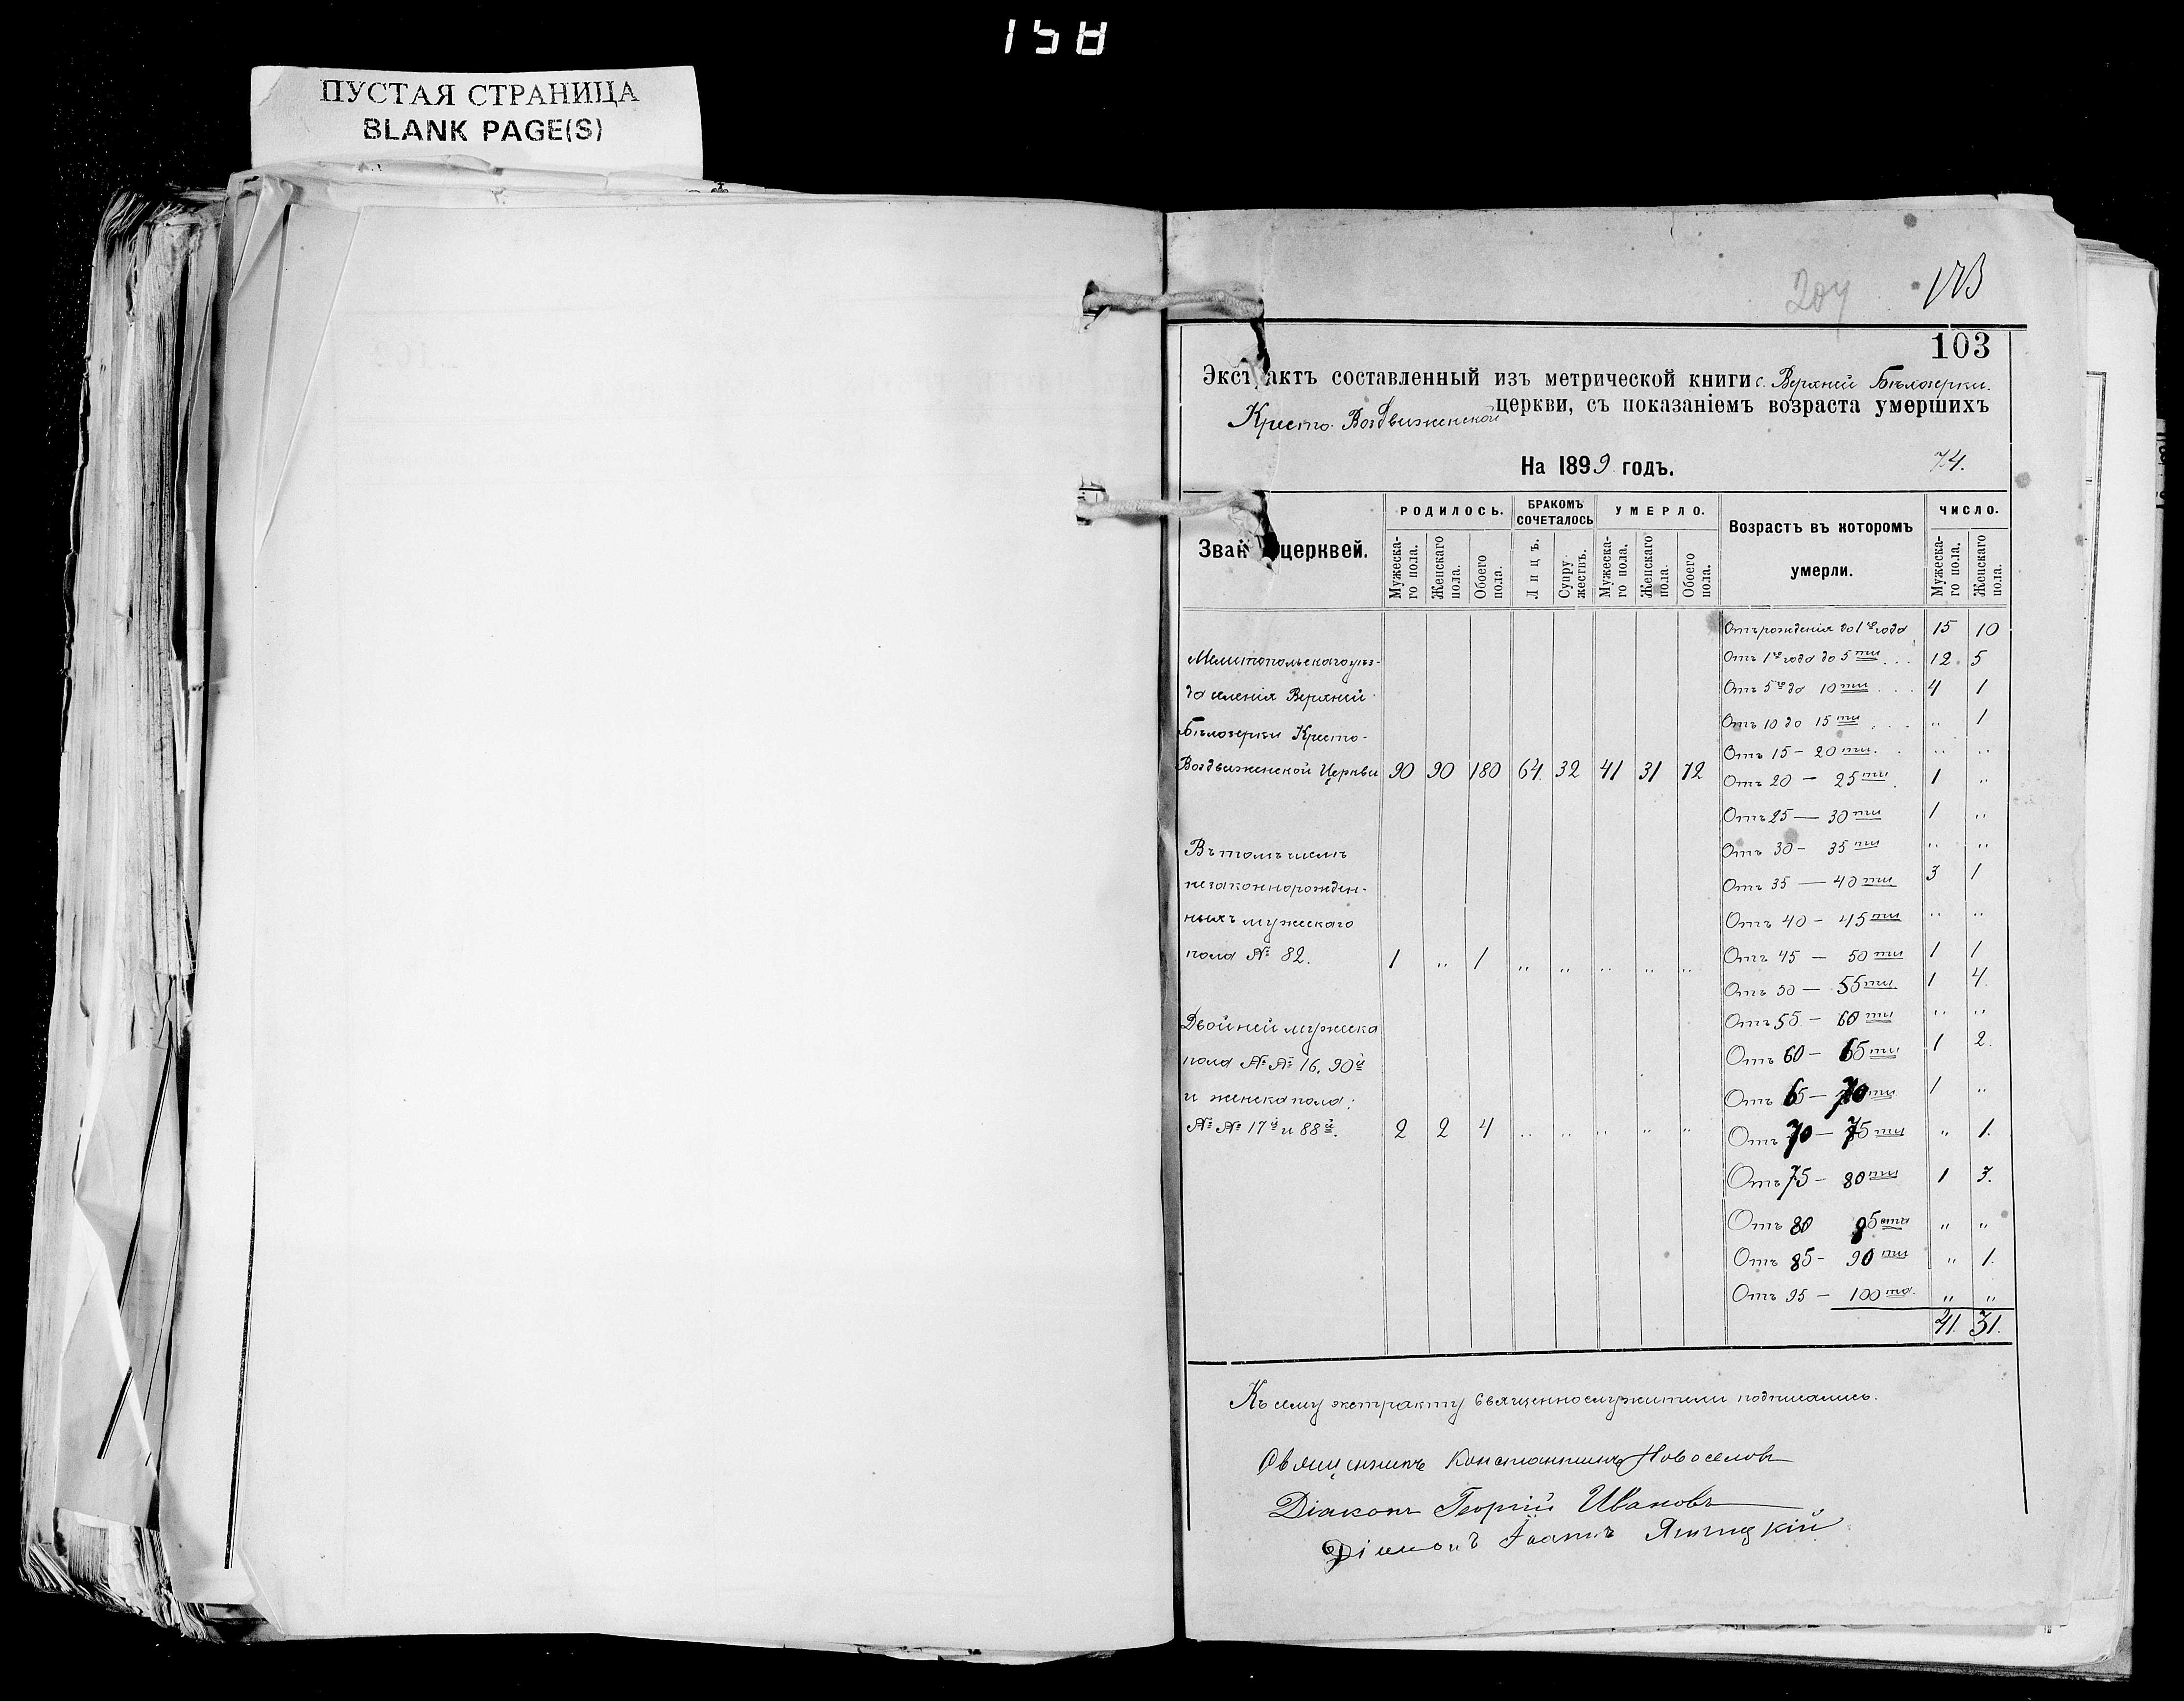 158
ПУСТАЯ СТРАНИЦА
BLANK PAGE(S)
204
103
Экстрактъ составленный изъ метрической книги с. Верхней Бѣлозерки.
Кресто-Воздвиженской церкви, съ показаніемъ возраста умершихъ
На 1899 годъ. 74.
Зван церквей. РОДИЛОСЬ. БРАКОМЪ СОЧЕТАЛОСЬ УМЕРЛО. Возрастъ въ которомъ умерли. ЧИСЛО.
Мужеска-го пола. Женскаго пола. Обоего пола. Лицъ. Супружествъ. Мужеска-го пола. Женскаго пола. Обоего пола. Мужеска-го пола. Женскаго пола.
Отъ рожденія до 1го года 15 10
Мелитопольскаго уѣз- Отъ 1го года до 5ти . . . 12 5
да селенія Верхней Отъ 5ти до 10ти . . . 4 1
Бѣлозерки Кресто- Отъ 10 до 15ти . . . „ 1
Отъ 15 – 20ти . . „ „
Воздвиженской Церкви 90 90 180 64. 32 41 31 72 Отъ 20 – 25ти . 1 „
Отъ 25 — 30ти 1 „
Въ томъ числѣ Отъ 30 – 35ти „ „
незаконнорожден- Отъ 35 — 40ти 3 1
ныхъ мужескаго Отъ 40 – 45ти „ „
пола № 82. 1 „ 1 „ „ „ „ „ Отъ 45 — 50ти 1 1
Отъ 50 — 55ти 1 4.
Двойней мужеска Отъ 55 – 60ти „ „
пола №№ 16, 90й Отъ 60 – 65ти 1 2.
и женска пола: Отъ 65 – 70ти 1 „
№№ 17й и 88й. 2 2 4 „ „ „ „ „ Отъ 70 – 75ти „ 1.
Отъ 75 – 80ти 1 3.
Отъ 80 85ти „ „
Отъ 85 – 90ти „ 1.
Отъ 95 – 100та. „ „
41. 31.
Къ сему экстракту священнослужители подписались.
Священникъ Константинъ Новоселовъ
Діаконъ Георгій Ивановъ
Діаконъ Іоаннъ